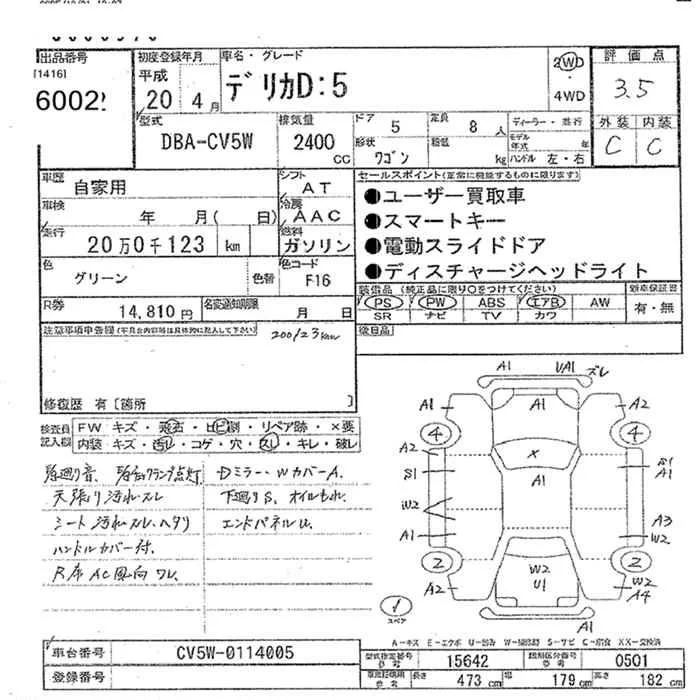 出品番号
[1416]
6002
初度登録年月
平成
20 4月
車名・グレード
デリカD:5
2WD
・
4WD
評価点
3.5
外装 内装
C C
型式
DBA-CV5W
排気量
2400
CC
ドア
5
形状
ワゴン
定員
8人
積載
kg
ディーラー・並行
モデル年式 年
ハンドル 左・右
車歴
自家用
車検
年 月( 日)
走行
20万0千123 km
シフト
AT
冷房
AAC
燃料
ガソリン
色
グリーン
色替
色コード
F16
R券
14,810円
名変通知期限
月 日
セールスポイント(正常に機能するものに限ります)
●ユーザー買取車
●スマートキー
●電動スライドドア
●ディスチャージヘッドライト
装備品(純正品に限り○をつけてください)
PS PW ABS エアB AW
SR ナビ TV カワ
新車保証書
有・無
後日品
注意事項申告欄(不具合内容等は具体的に記入して下さい)
200123km
修復歴 有〔箇所 〕
検査員記入欄
FW キズ・飛石・ヒビ割・リペア跡・×要
内装 キズ・汚レ・コゲ・穴・スレ・キレ・破レ
天張り汚れスレ
シート汚れスレ、ヘタリ
ハンドルカバー付.
Dミラー・WカバーA.
下廻りS、オイルもれ.
エンドパネルU.
A1 UA1 ズレ
A1 A1 A2
4 4
A2 X
S1 A1 S1 A1
W2
A1 A3 W2
2 2
A2 W2 U1 W2 A4
A1
スペア
A-キズ E-エクボ U-凹み W-補修跡 S-サビ C-腐食 XX-交換済
車台番号
CV5W-0114005
登録番号
型式指定番号
参考
15642
類別区分番号
参考
0501
参考
長さ 473 cm
幅 179 cm
高さ 182 cm